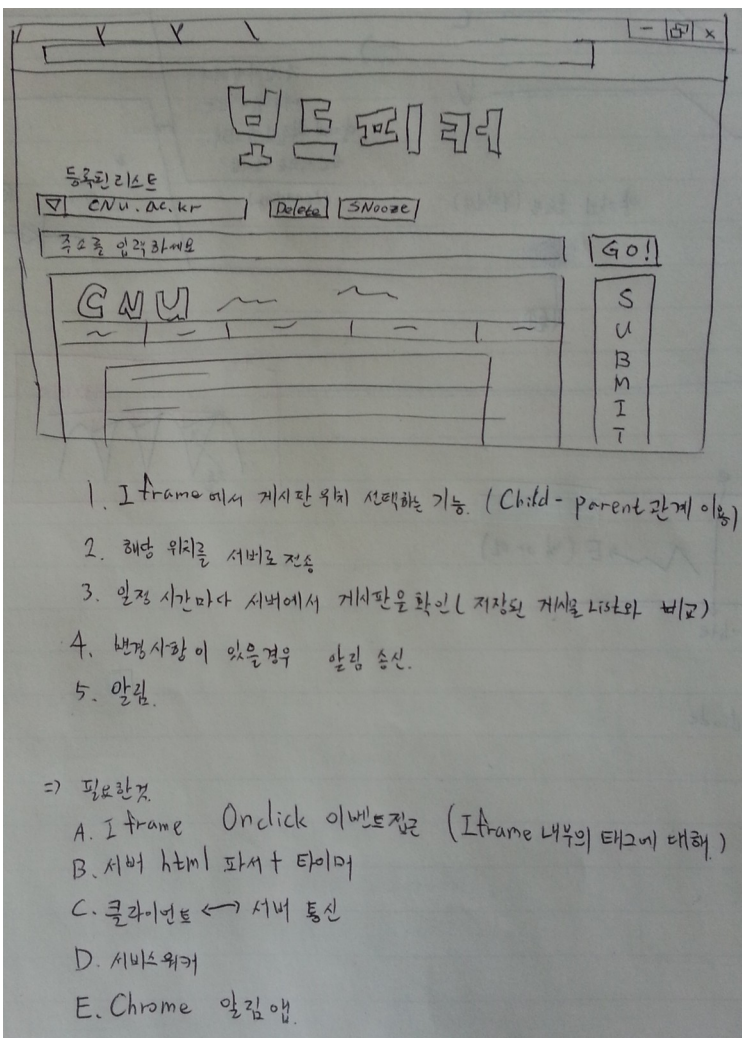 - x
보드피커
등록된 리스트
▽ CNU.ac.kr Delete SNooze
주소를 입력하세요 GO!
CNU
SUBMIT
1. Iframe에서 게시판 위치 선택하는 기능. (Child - parent 관계 이용)
2. 해당 위치를 서버로 전송
3. 일정 시간마다 서버에서 게시판을 확인 ( 저장된 게시글 List와 비교)
4. 변경사항이 있을경우 알림 송신.
5. 알림.
=> 필요한것.
A. Iframe Onclick 이벤트 접근 (Iframe 내부의 태그에 대해.)
B. 서버 html 파서 + 타이머
C. 클라이언트 <-> 서버 통신
D. 서비스워커
E. Chrome 알림 앱.